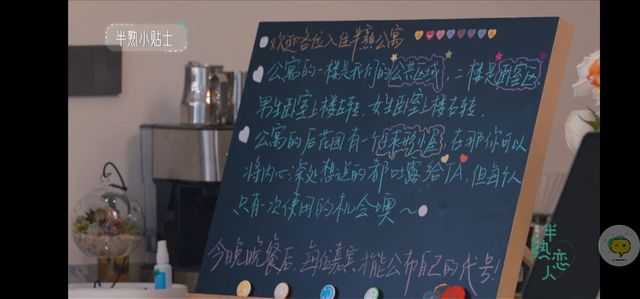 半熟小贴士
欢迎各位入住半熟公寓
公寓的一楼是我们的公共区域,二楼是卧室区,
男生卧室上楼左转,女生卧室上楼右转.
公寓的后花园有一个 在那你可以
将内心深处想说的都吐露给TA,但每人
只有一次使用的机会噢~
今晚晚餐后,每位嘉宾才能公布自己的代号!
半熟恋人